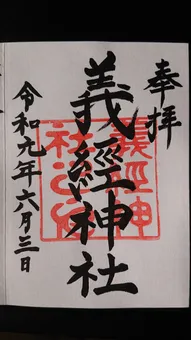 奉拝
義經神社
令和元年六月三日
義經神
社之印